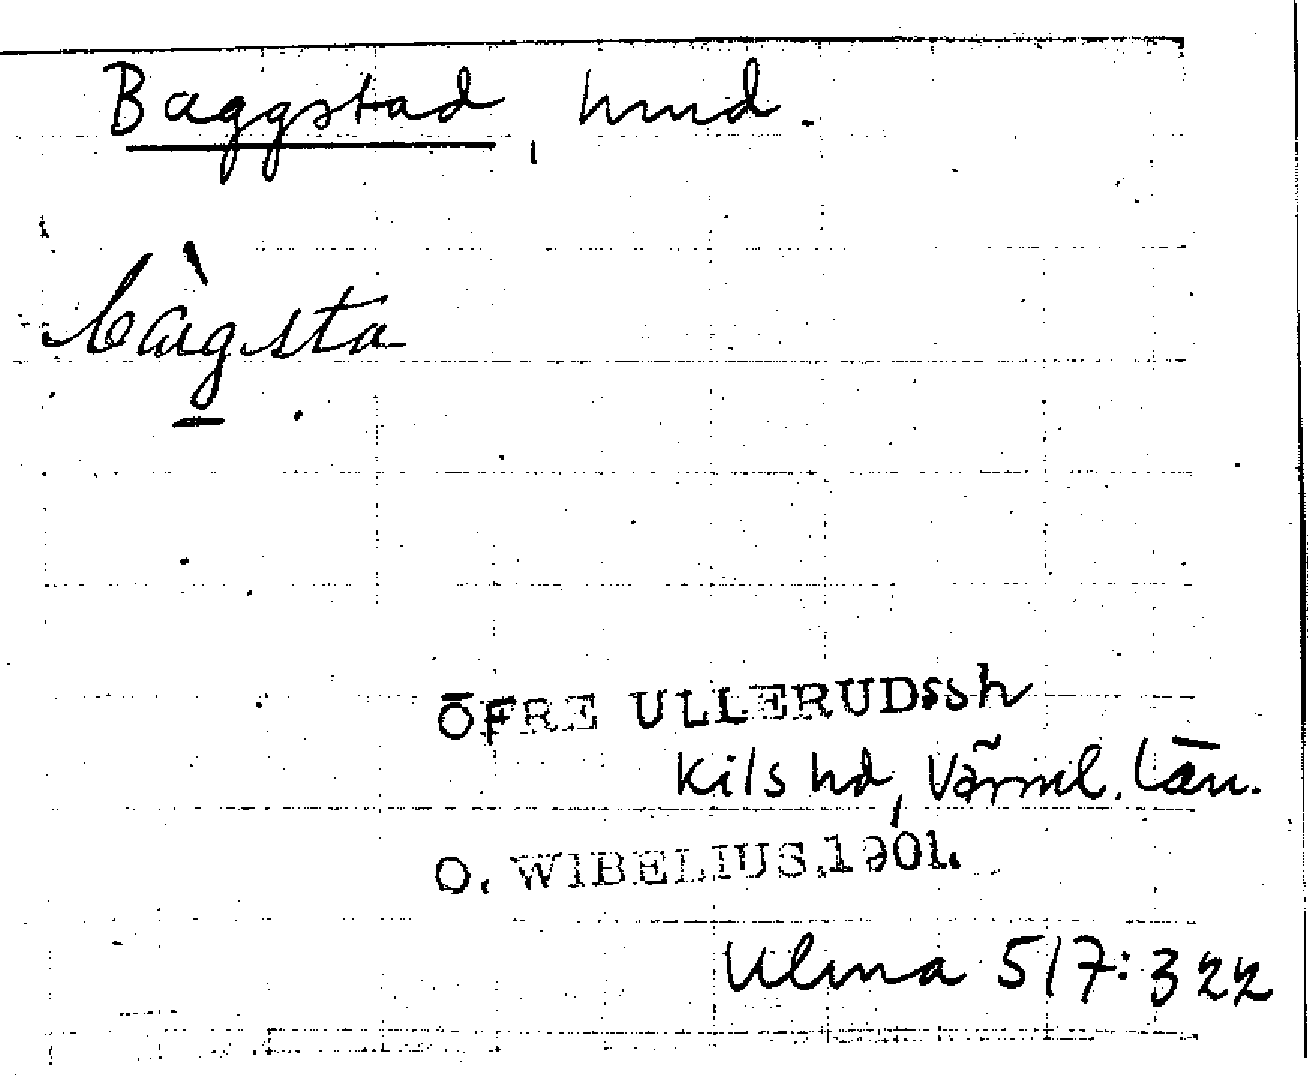 Baggstad, hmd.
bàgsta
ÖFRE ULLERUDssh
Kils hd, Värml. län.
O. WIBELIUS.1901.
Ulma 517:322